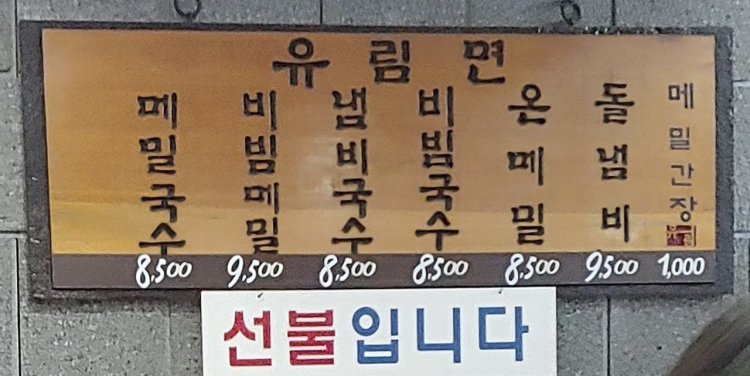 유림면
메밀국수
비빔메밀
냄비국수
비빔국수
온메밀
돌냄비
메밀간장
8,500 9,500 8,500 8,500 8,500 9,500 1,000
선불입니다